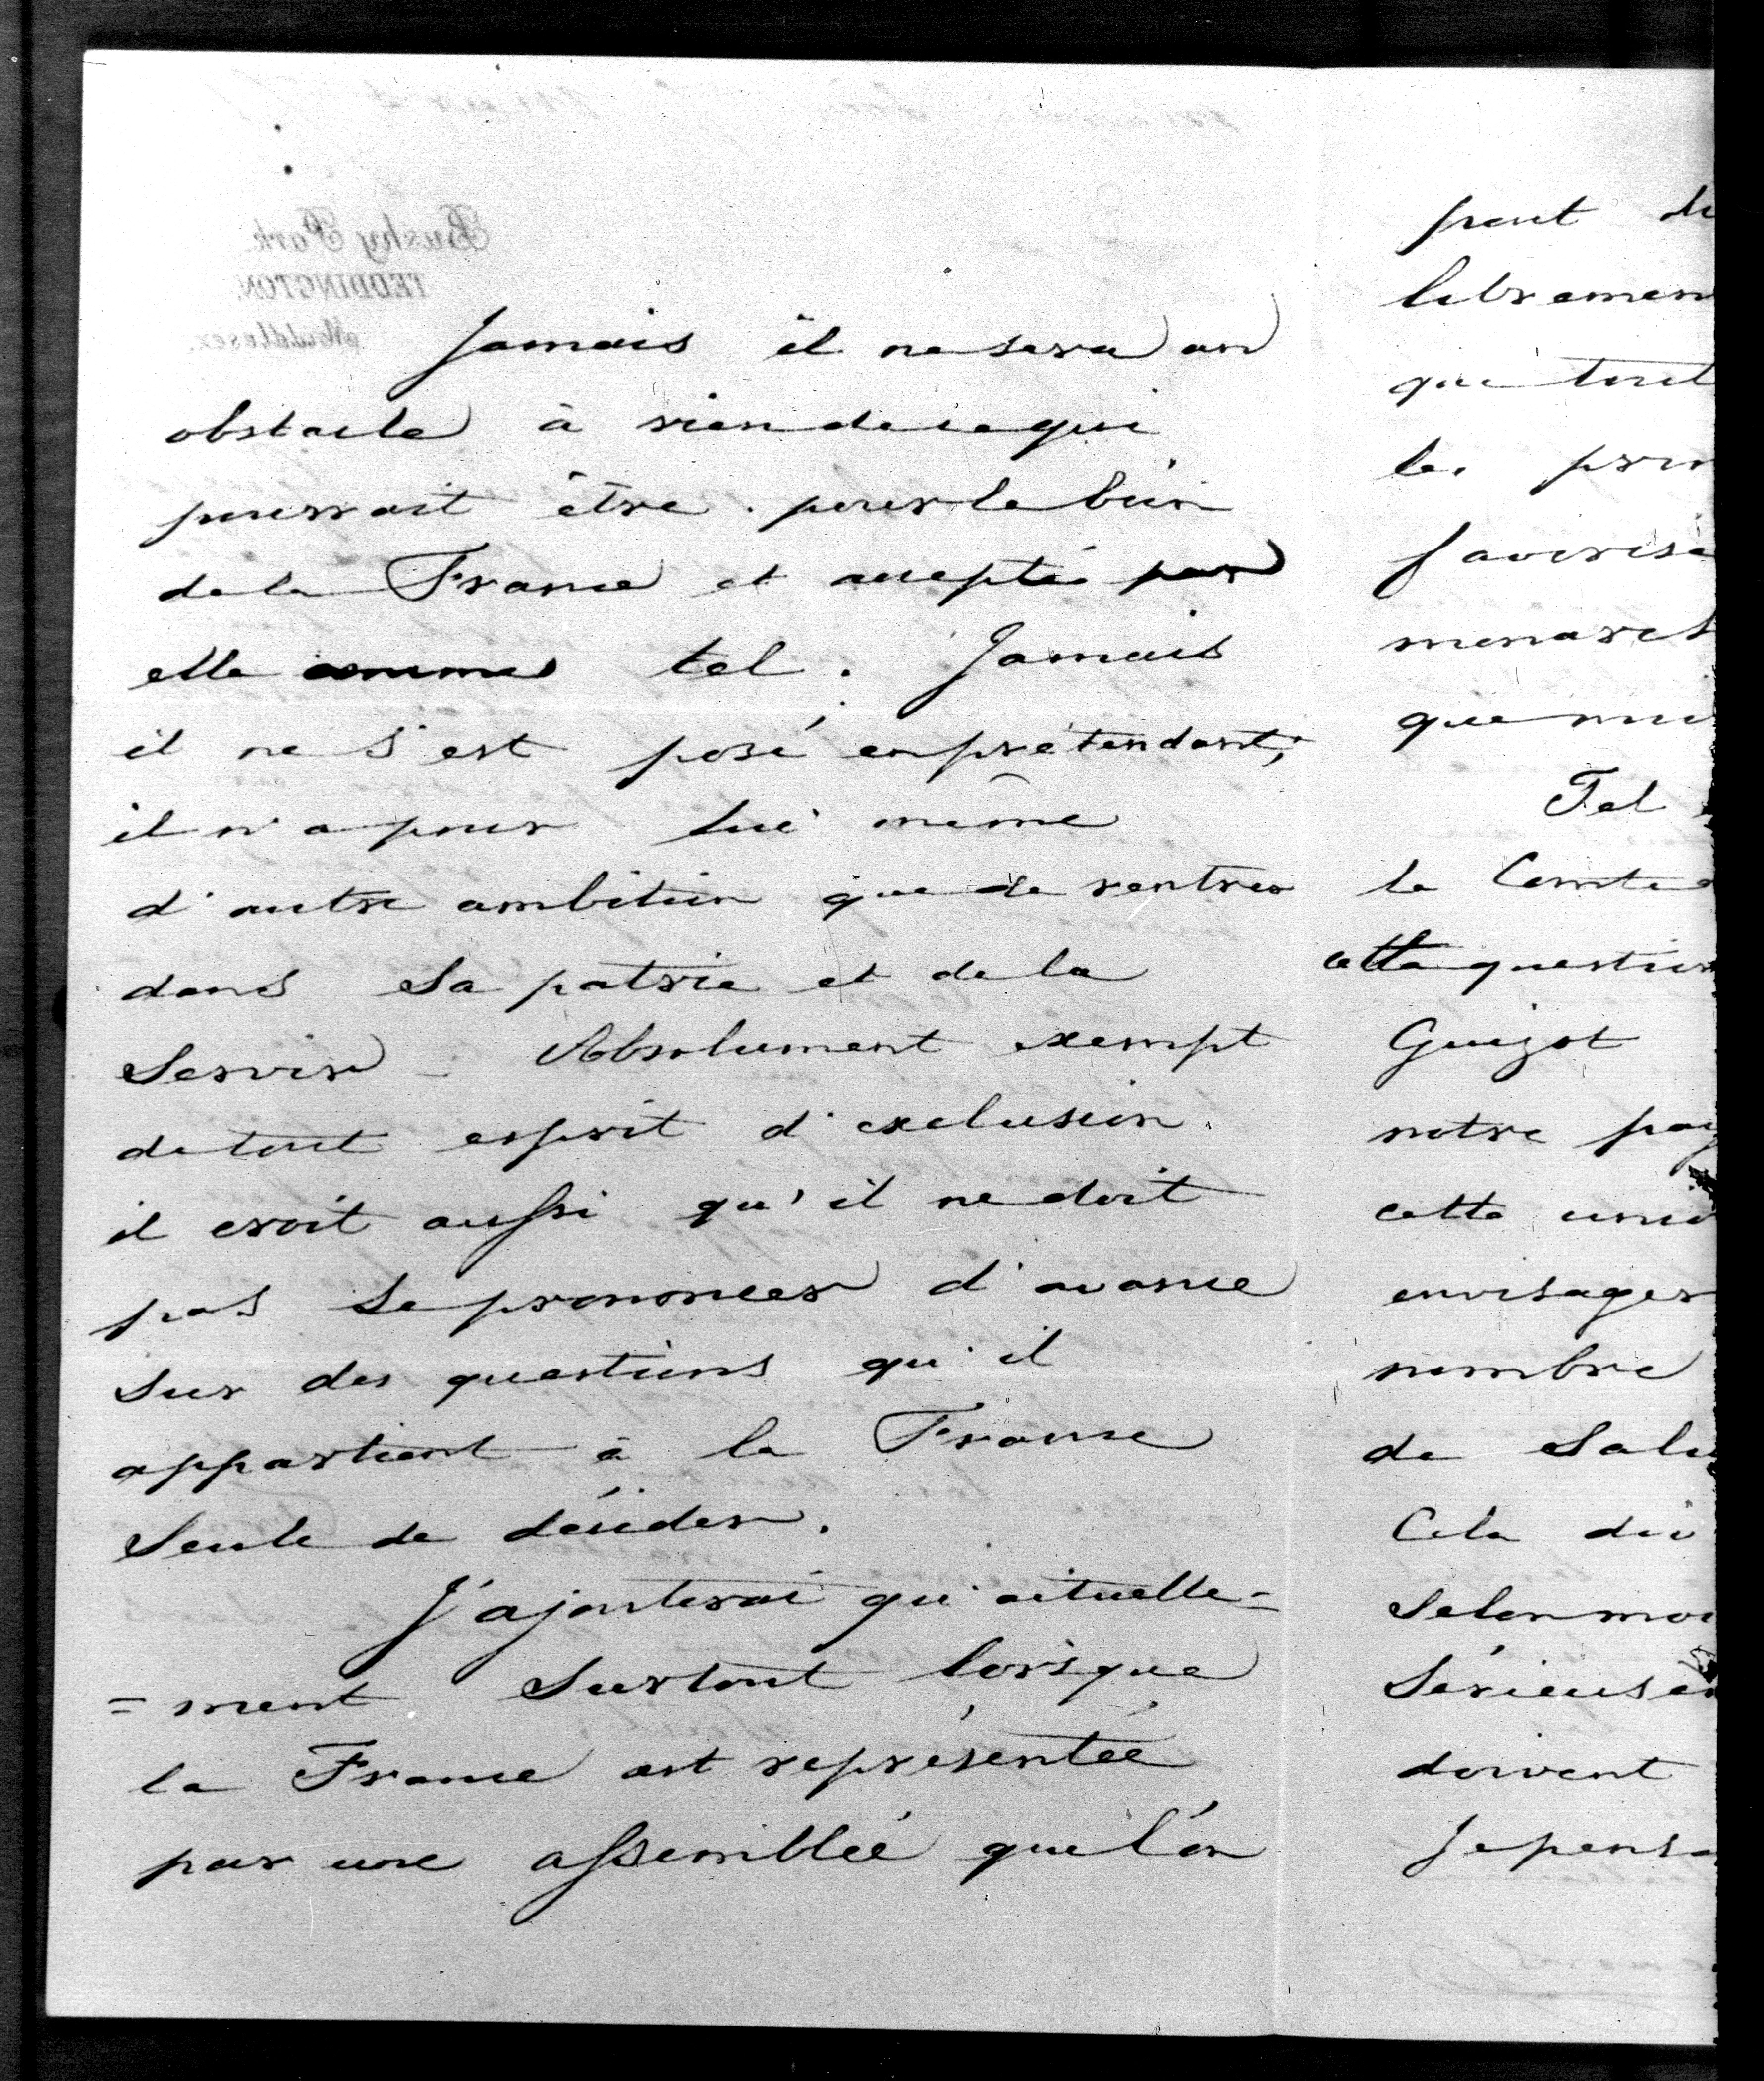 Bushy Park
TEDDINGTON.
Middlesex.
Jamais il ne sera un
obstacle à rien de ce qui
pourrait être pour le bien
de la France et accepté par
elle comme tel. Jamais
il ne s'est posé en prétendant;
il n'a pour lui même
d'autre ambition que de rentrer
dans sa patrie et de la
servir. Absolument exempt
de tout esprit d'exclusion.
il croit aussi qu'il ne doit
pas se prononcer d'avance
sur des questions qu'il
appartient à la France
seule de décider.
J'ajouterai qu'actuelle=
=ment surtout lorsque
la France est représentée
par une assemblée que l'on
peut
librement
que tout
les
favorise
que
Tel
le Comte
cette question
Guizot
notre pay
cette
envisager
nombre
de Salu
Cela
Selon moi
doivent
Je pense